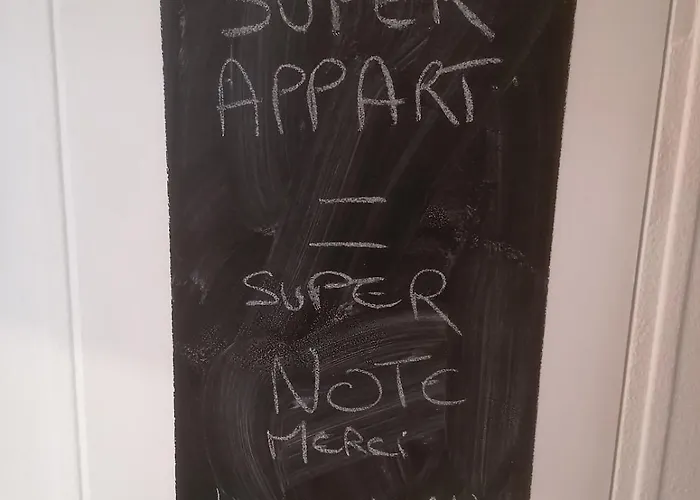 SUPER
APPART
=
SUPER
NOTE
MERCi